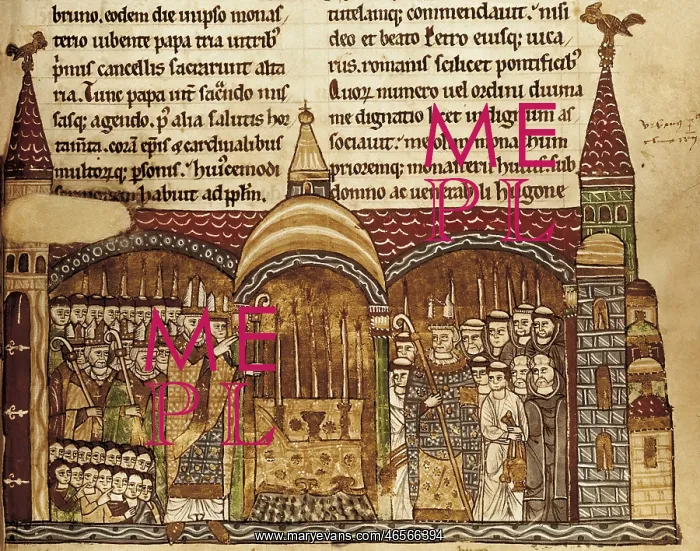 bruno. eodem die in ipso monas
terio uibente papa tria in trib'
p'mis cancellis sacrarunt alta
ria. Tunc papa int' sac̄ndo mis
sasq; agendo. p' alia salutis hor
tam̄ta. corā ep̄is & cardinalibus
multorq; p̄sonis. huiscemodi
habuit ad pp̄lm.
tutelamq; commendauit. nisi
deo et beato Petro eiusq; uica
riis. romanis scilicet pontificib'
Quor numero uel ordini diuina
me dignatio licet indignum as
sociauit. me olim monachum
prioremq; monasterii huius. sub
domno ac uenerabili hugone
ME
PL
ME
PL
www.maryevans.com/46566394